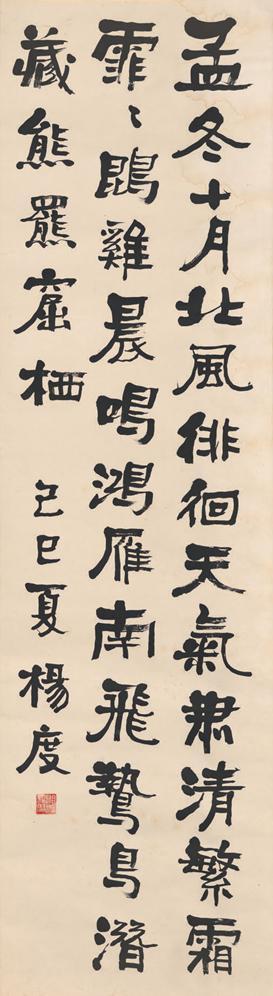 孟冬十月北風徘徊天氣肅清繁霜
霏〻鵾雞晨鳴鴻雁南飛鷙鳥潛
藏熊羆窟栖 己巳夏楊度